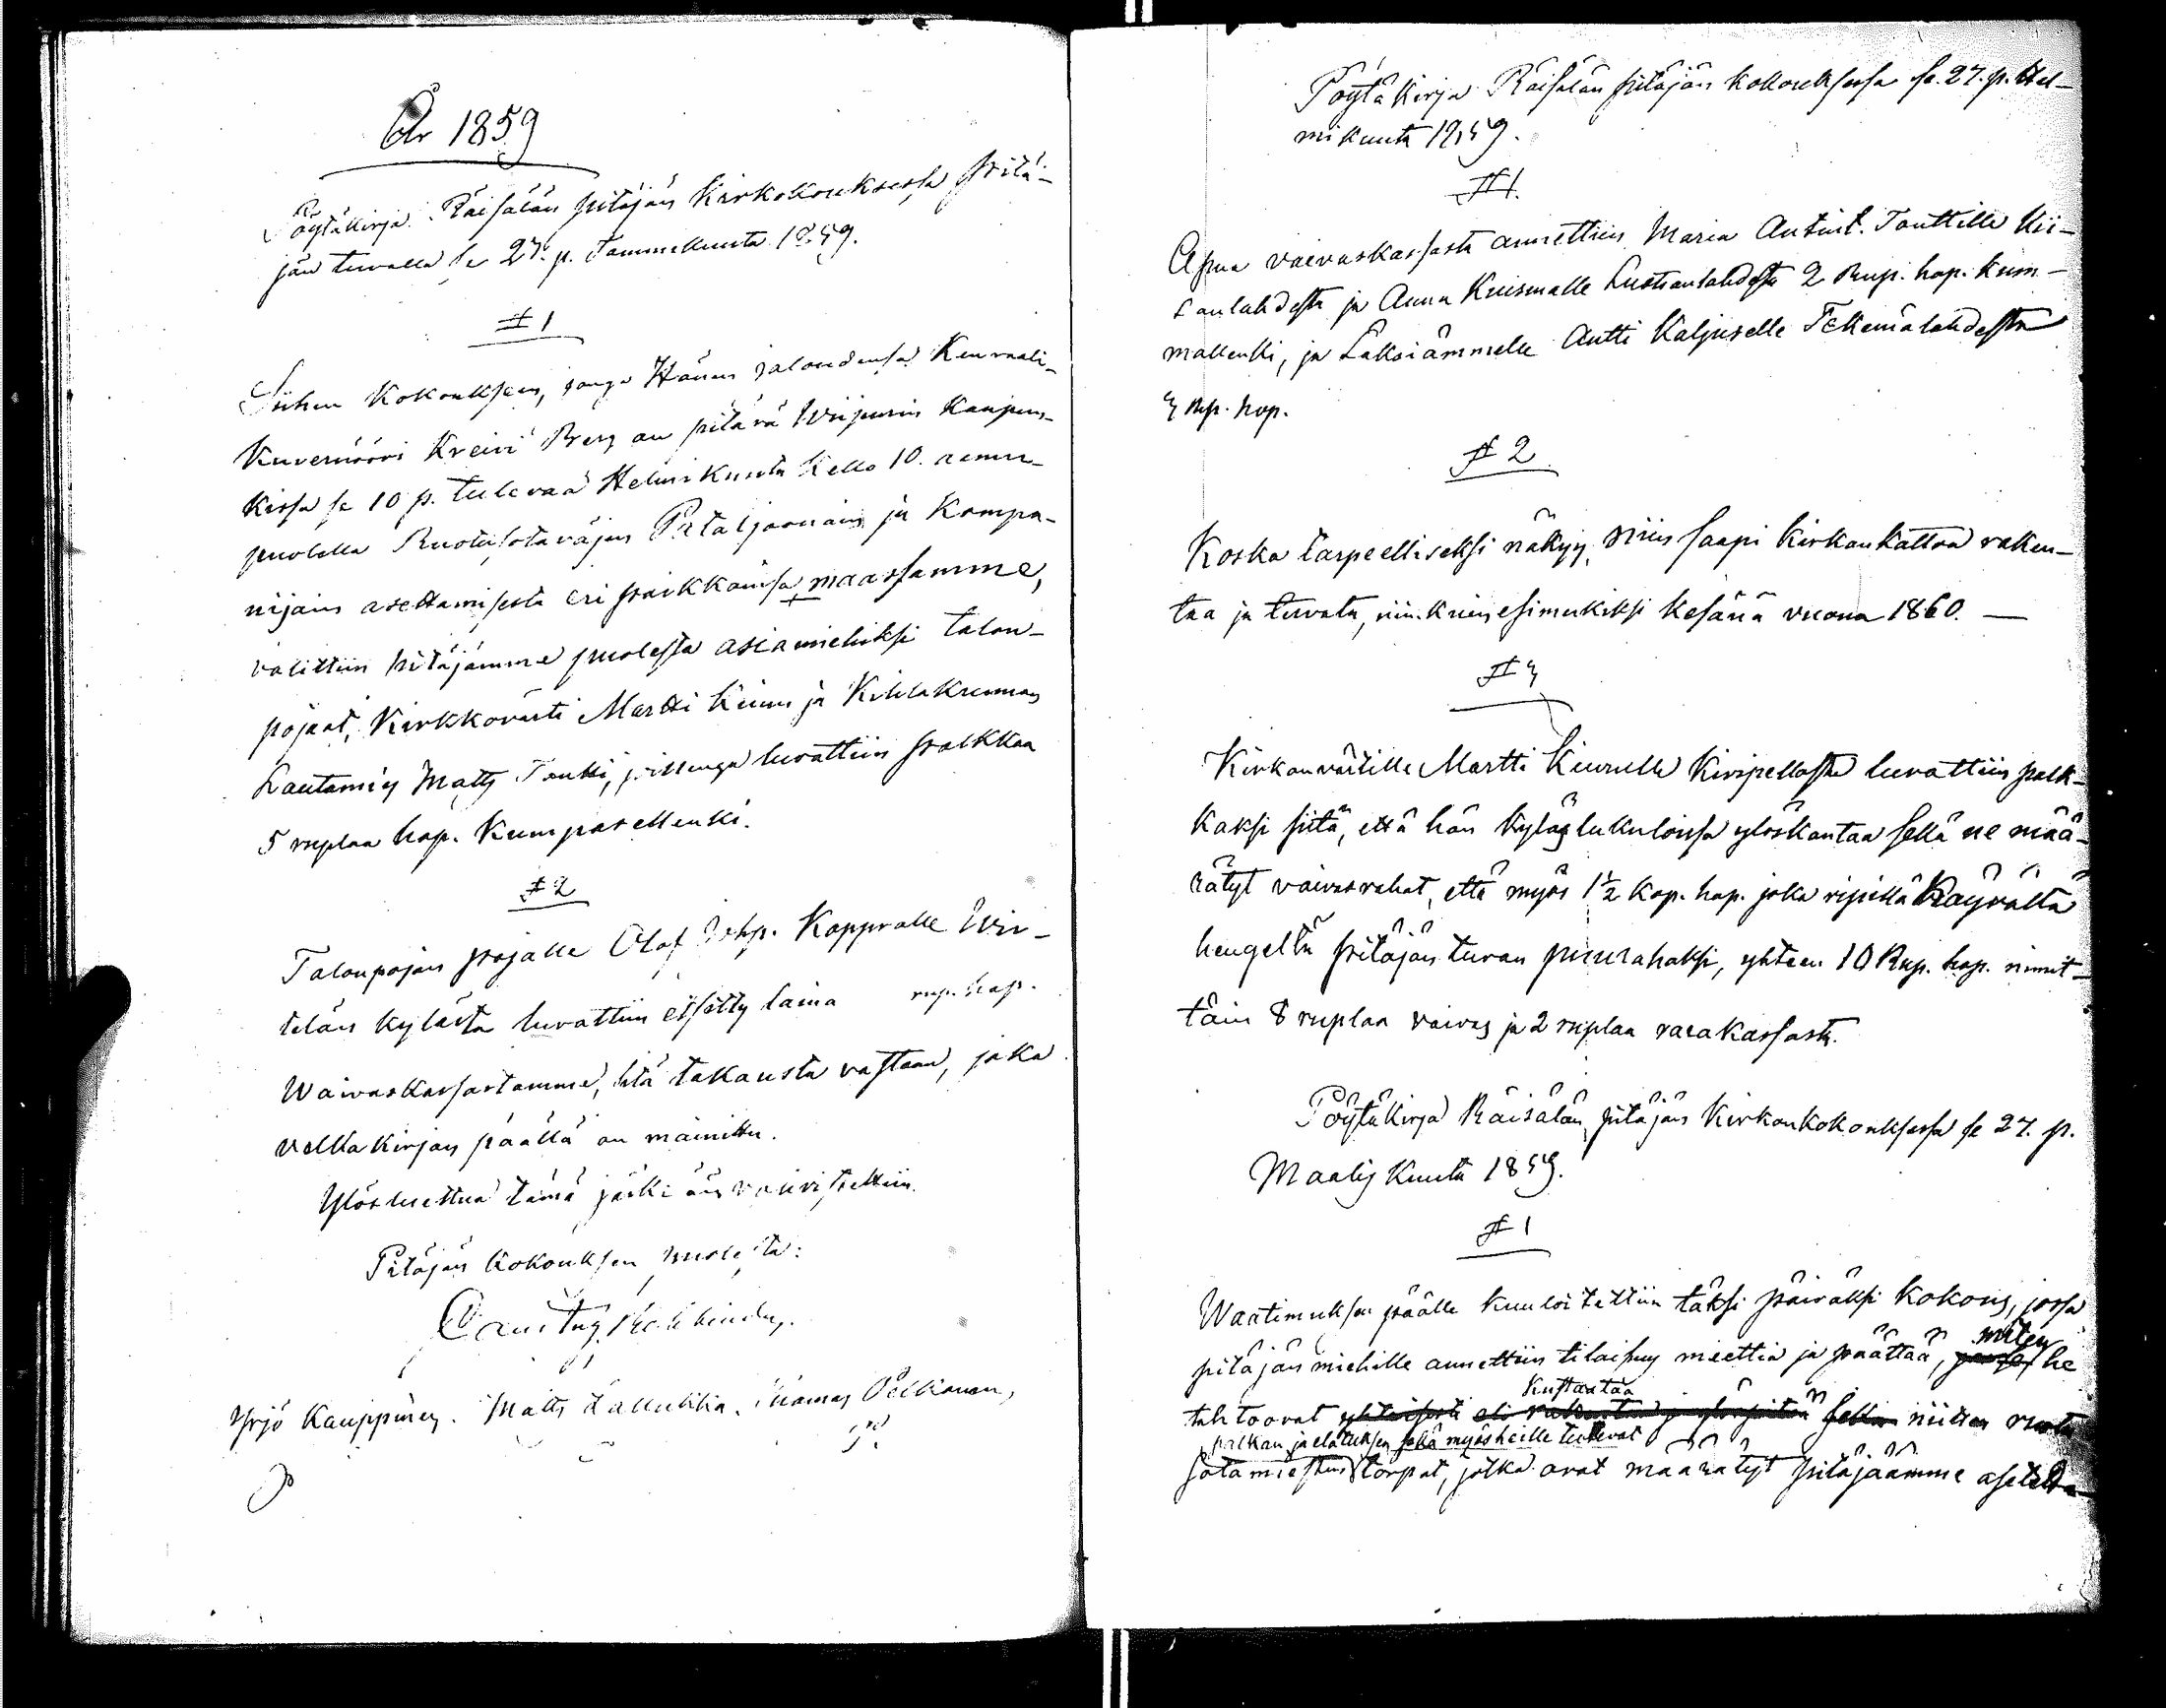 År 1859
Pöytäkirja Räisälän pitäjän Kirkokouksessa pitä-
jän tuvalla se 27. p. Tammekuuta 1859.
# 1
Siihen Kokouksen, jonga Hänen jaloudensa Kenraali-
Kuvernööri Kreivi Berg on pitävä Wiipurin Kaupun-
kissa se 10 p. tulevaa Helmikuuta kello 10. aamu-
puolella Ruotusotaväjen Pataljoonain ja Kompa-
nijain asettamisesta eri paikkainsa maassamme,
valittiin pitäjämme puolesta asiamiehiksi talon-
pojaat, Kirkkovärti Martti Kiuru ja Kihlakunnan
Lautamies Matts Toutti, joillenga luvattiin palkkaa
5 ruplaa hop. Kumpasellenki.
# 2
Talonpojan pojalle Olof Koppralle Wii-
telän kylästä luvattiin etsitty laina rup. hop.
Waivaskassastamme, sitä takausta vastaan, joka
velkakirjan päällä on mainittu.
Ylösluettua tämä jälki vaivistettiin.
Pitäjän kokouksen puolesta:
Yrjö Kauppinen. Matts Lallukka. Thomas Pelkonen,
Pöytäkirja Räisälän pitäjän kokouksessa se. 27. p. Hel-
mikuuta 1859.
# 1.
Apua vaivaskassasta annettiin Maria Antint. Touttille Sii-
lanlahdesta ja Anna Kuismalle Lustianlahdesta 2 Rup. hop. kum-
mallenki, ja Antti Kaljuselle Tekemälahdesta
3 Rup. hop.
# 2
Koska tarpeelliseksi näkyy, niin saapi kirkonkattoa raken-
taa ja tervata, niin kuin esimukiksi kesänä vuona 1860. —
# 3
Kirkonvärtille Martti Kiurulle Kivipellosta luvattiin palk-
kaksi siitä, että hän kyläslukuloissa ylöskantaa sekä ne mää-
rätyt vaivasrahat, että myös 1½ Kop. hop. joka ripillä Käyvältä
hengeltä pitäjän tuvan puurahaksi, yhteen 10 Rup. hop. nimit-
täin 8 ruplaa vaivas ja 2 ruplaa varakassasta.
Pöytäkirja Räisälän pitäjän Kirkonkokouksessa se 27. p.
Maalis Kuuta 1859.
# 1
Waatimuksen päälle kuuloitettiin täksi päiväksi Kokous, jossa
pitäjän miehille annettiin tilaisuus miettiä ja päättää, miten he
tahtoovat Kustantaa niitten ruotu
palkan ja elatuksen sekä myös heille tulevat
sotamiesten torpat, jotka ovat määrätyt pitäjäämme asetetta-